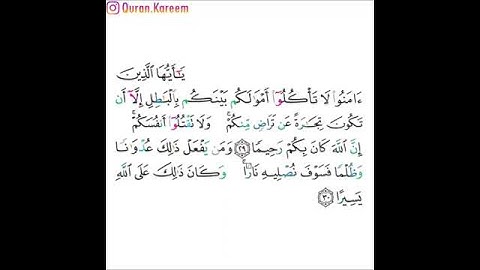 Quran.Kareem
يَٰٓأَيُّهَا ٱلَّذِينَ
ءَامَنُوا۟ لَا تَأْكُلُوٓا۟ أَمْوَٰلَكُم بَيْنَكُم بِٱلْبَٰطِلِ إِلَّآ أَن
تَكُونَ تِجَٰرَةً عَن تَرَاضٍ مِّنكُمْ ۚ وَلَا تَقْتُلُوٓا۟ أَنفُسَكُمْ ۚ
إِنَّ ٱللَّهَ كَانَ بِكُمْ رَحِيمًا ٢٩ وَمَن يَفْعَلْ ذَٰلِكَ عُدْوَٰنًا
وَظُلْمًا فَسَوْفَ نُصْلِيهِ نَارًا ۚ وَكَانَ ذَٰلِكَ عَلَى ٱللَّهِ
يَسِيرًا ٣٠